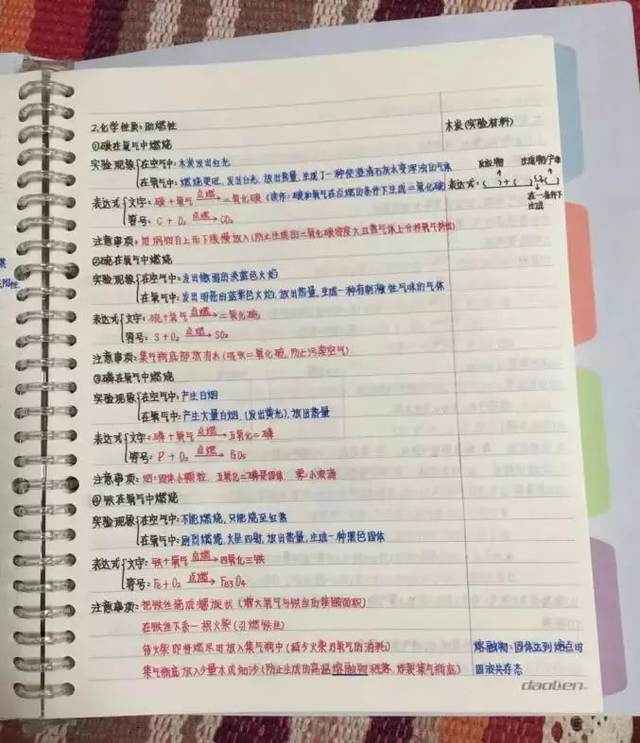 2.化学性质:助燃性
木炭(实验材料)
①碳在氧气中燃烧
实验现象 在空气中:木炭发出红光
在氧气中:燃烧更旺,发出白光,放出热量,生成了一种使澄清石灰水变浑浊的气体
反应物 生成物/产物
表达式 文字:碳+氧气 点燃→ 二氧化碳 (读作:碳和氧气在点燃的条件下生成二氧化碳)
表达式:( )+( )→( )
符号:C+O₂ 点燃→ CO₂
在一条件下
生成
注意事项:
②硫在氧气中燃烧
实验现象 在空气中:发出微弱的淡蓝色火焰
在氧气中:发出明亮的蓝紫色火焰,放出热量,生成一种有刺激性气味的气体
表达式 文字:硫+氧气 点燃→ 二氧化硫
符号:S+O₂ 点燃→ SO₂
注意事项:集气瓶底部放清水(吸收二氧化硫,防止污染空气)
③磷在氧气中燃烧
实验现象 在空气中:产生白烟
在氧气中:产生大量白烟,(发出黄光),放出热量
表达式 文字:磷+氧气 点燃→ 五氧化二磷
符号:P+O₂ 点燃→ P₂O₅
注意事项:烟:固体小颗粒 五氧化二磷是固体 雾:小液滴
④铁在氧气中燃烧
实验现象 在空气中:不能燃烧,只能烧至红热
在氧气中:剧烈燃烧,火星四射,放出热量,生成一种黑色固体
表达式 文字:铁+氧气 点燃→ 四氧化三铁
符号:Fe+O₂ 点燃→ Fe₃O₄
注意事项:把铁丝绕成螺旋状(增大氧气与铁丝的接触面积)
在铁丝下系一根火柴(引燃铁丝)
待火柴即将燃尽时放入集气瓶中(减少火柴对氧气的消耗)
熔融物:固体达到熔点时
集气瓶底放入少量水或细沙(防止生成的高温熔融物溅落,炸裂集气瓶底)
固液共存态
daolien